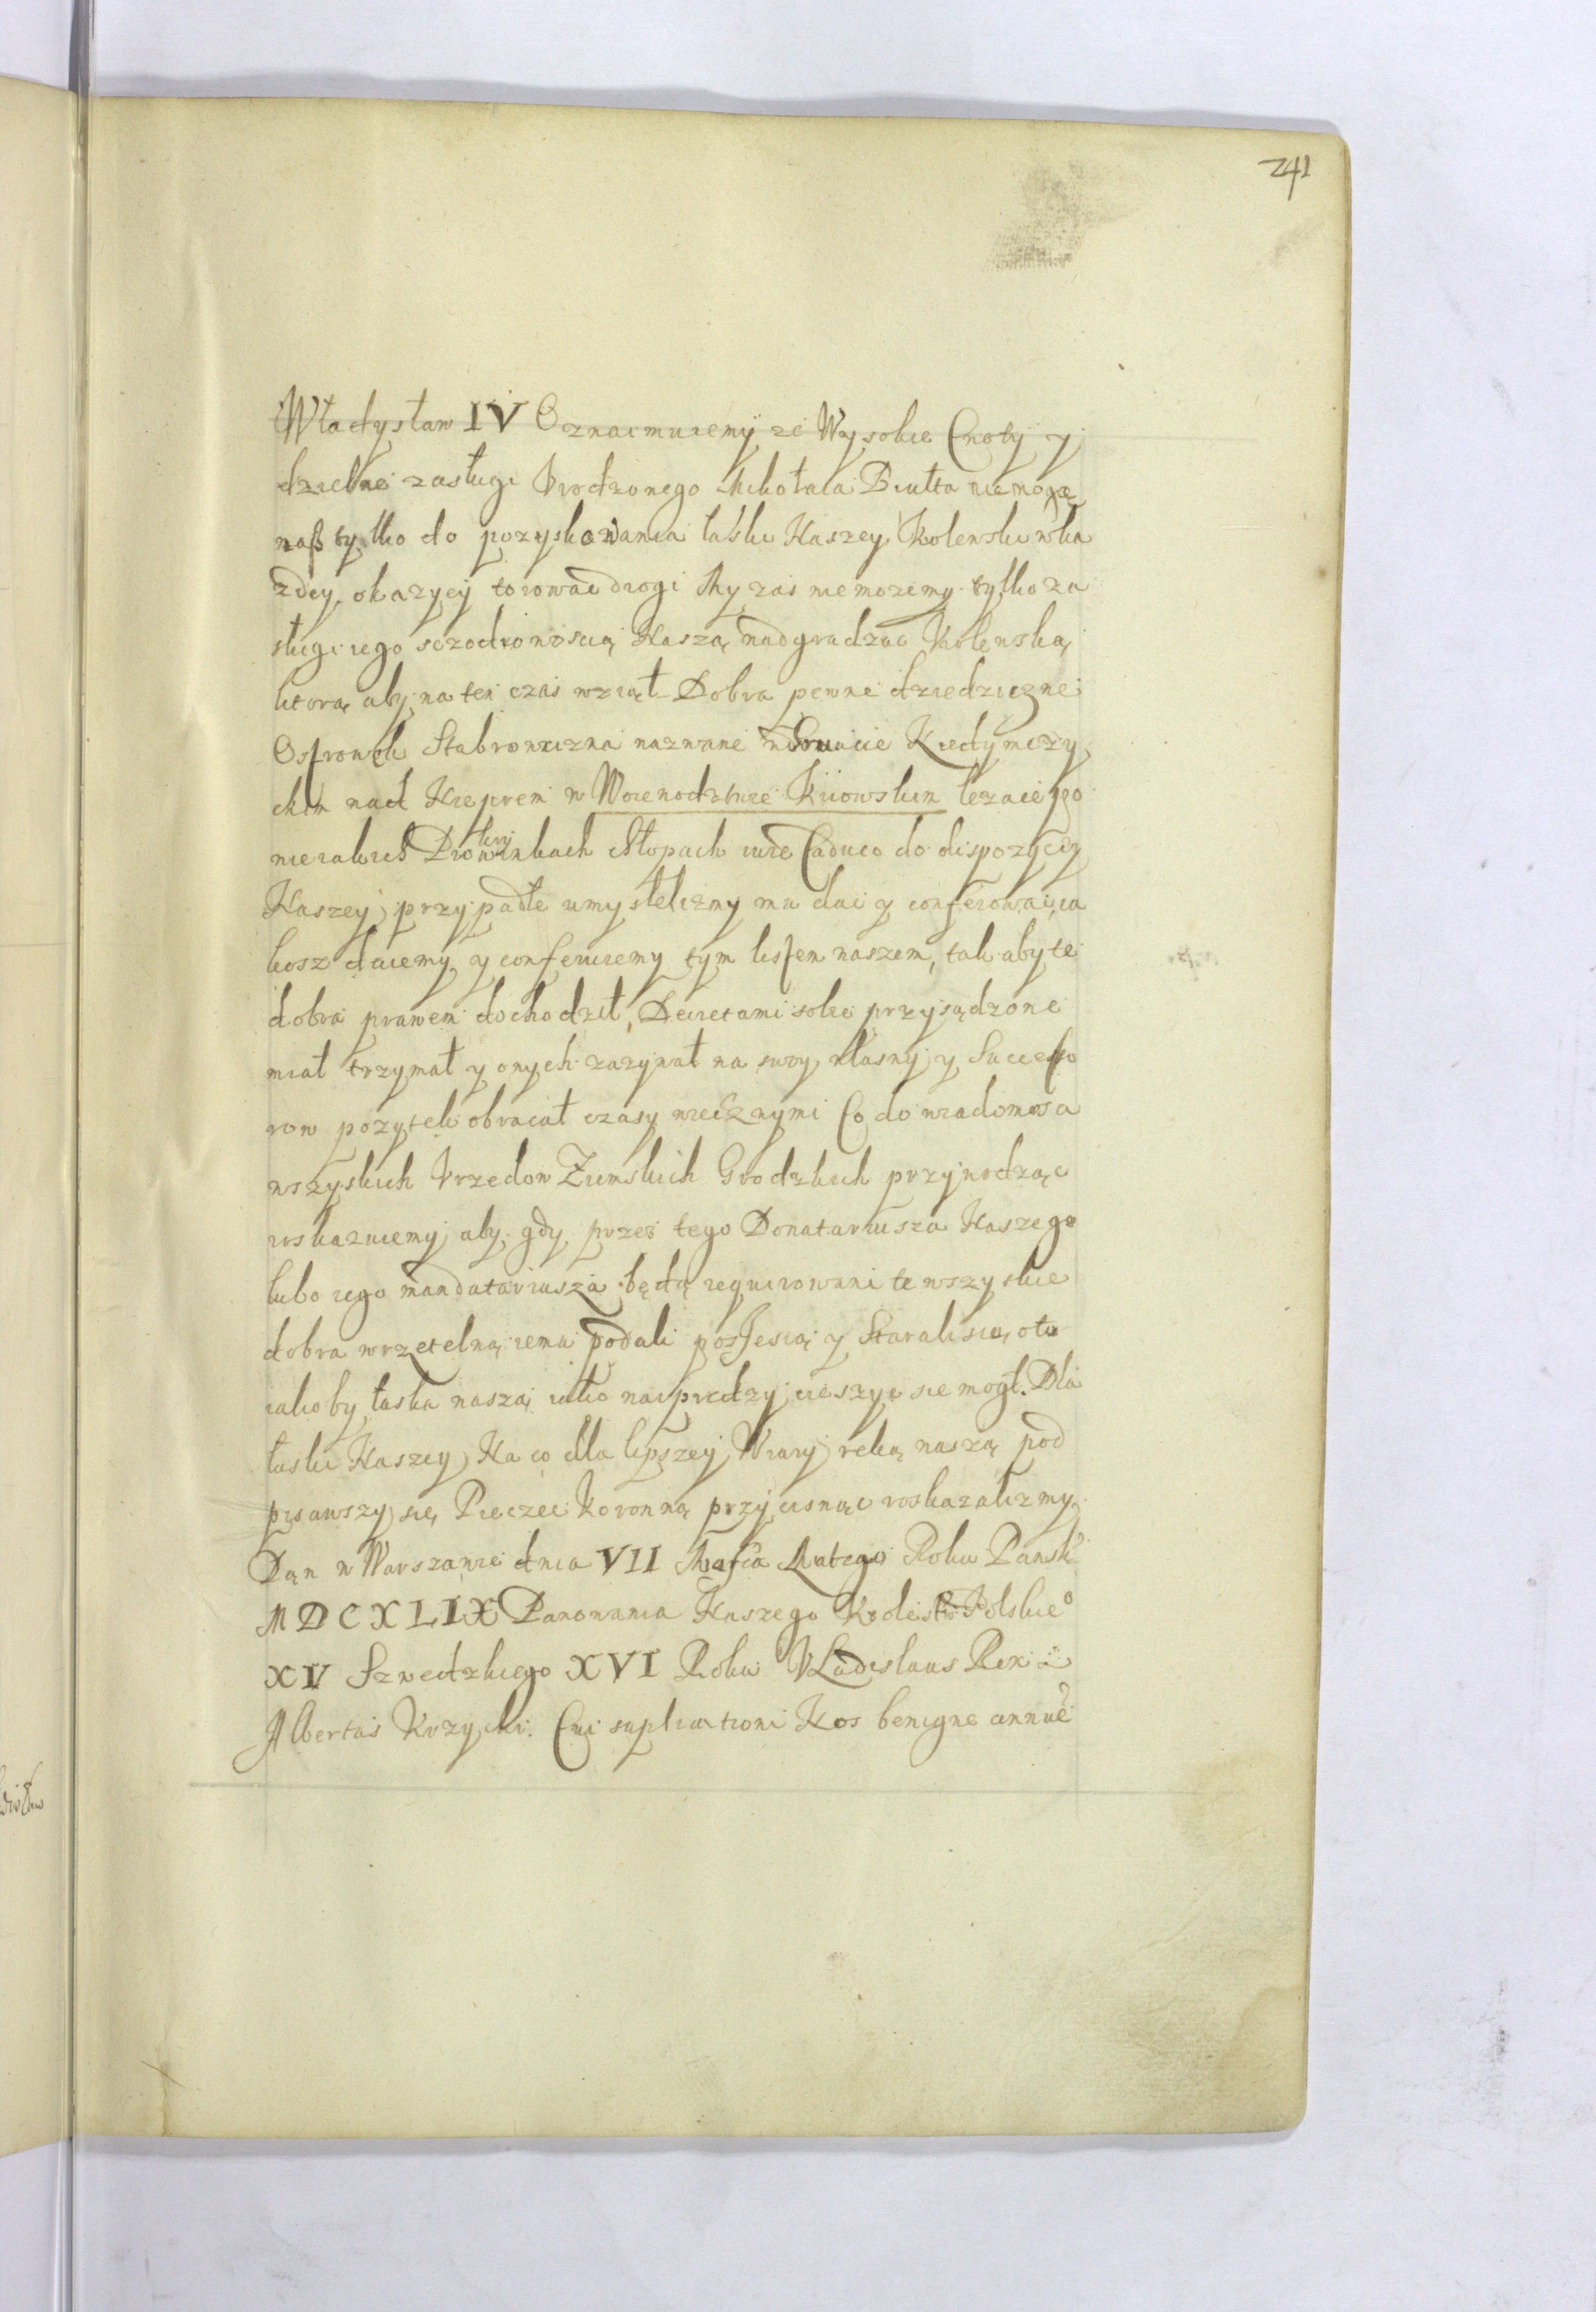 241
Władysław IV Oznaimuiemy ze Wysokie Cnoty y
dzielne zasługi Vrodzonego Mikołaia Biułta niemogą
naß tylko do pozyskowania łaski Naszey Kolenskiwka
zdey okazyey torowac drogi My zas niemozemy tylko za
sługi iego sczodrowoscią Naszą nadgradzac Kolenską
ktorą aby na ten czas wziął Dobra pewne dziedziczne
Ostrowek Stabrowiczna nazwane w Gruncie Kiedymczy
ckim nad Nieprem w Woiewodztwie Kiiowskim lezace po
nieiakich Drowinkach Chłopach iure Caduco do dispozyciy
Naszey przypadłe umyslelizmy mu dac y conferowac, ia
kosz daiemy y conferuiemy tym listem naszem, tak aby te
dobra prawem dochodził, Decretami sobie przysądzone
miał trzymał y onych zazywał na swoy własny y Successo
row pozytek obracał czasy wiecznymi Co do wiadomosci
wszyskich Vrzedow Ziemskich Grodzkich przywodząc
roskazuiemy aby gdy przes tego Donatariusza Naszego
lubo iego mandatariusza będą requirowani te wszyskie
dobra wrzetelną iemu podali possesią y Starali się, oto
iakoby łaska naszą iako naipredzy cieszyc sie mogł. Dla
łaski Naszey Na co dla lepszey Wiary reką naszą pod
pisawszy się, Pieczec Koronną przycisnąc roskazalizmy
Dan w Warszawie dnia VII Mašca Lutego Roku Pansk
MDCXLIX Panowania Naszego Krolestw Polskieº
XV Szwedzkiego XVI Roku VLadislaus Rex
Albertus Krzycki. Cui suplicationi Nos benigne annue